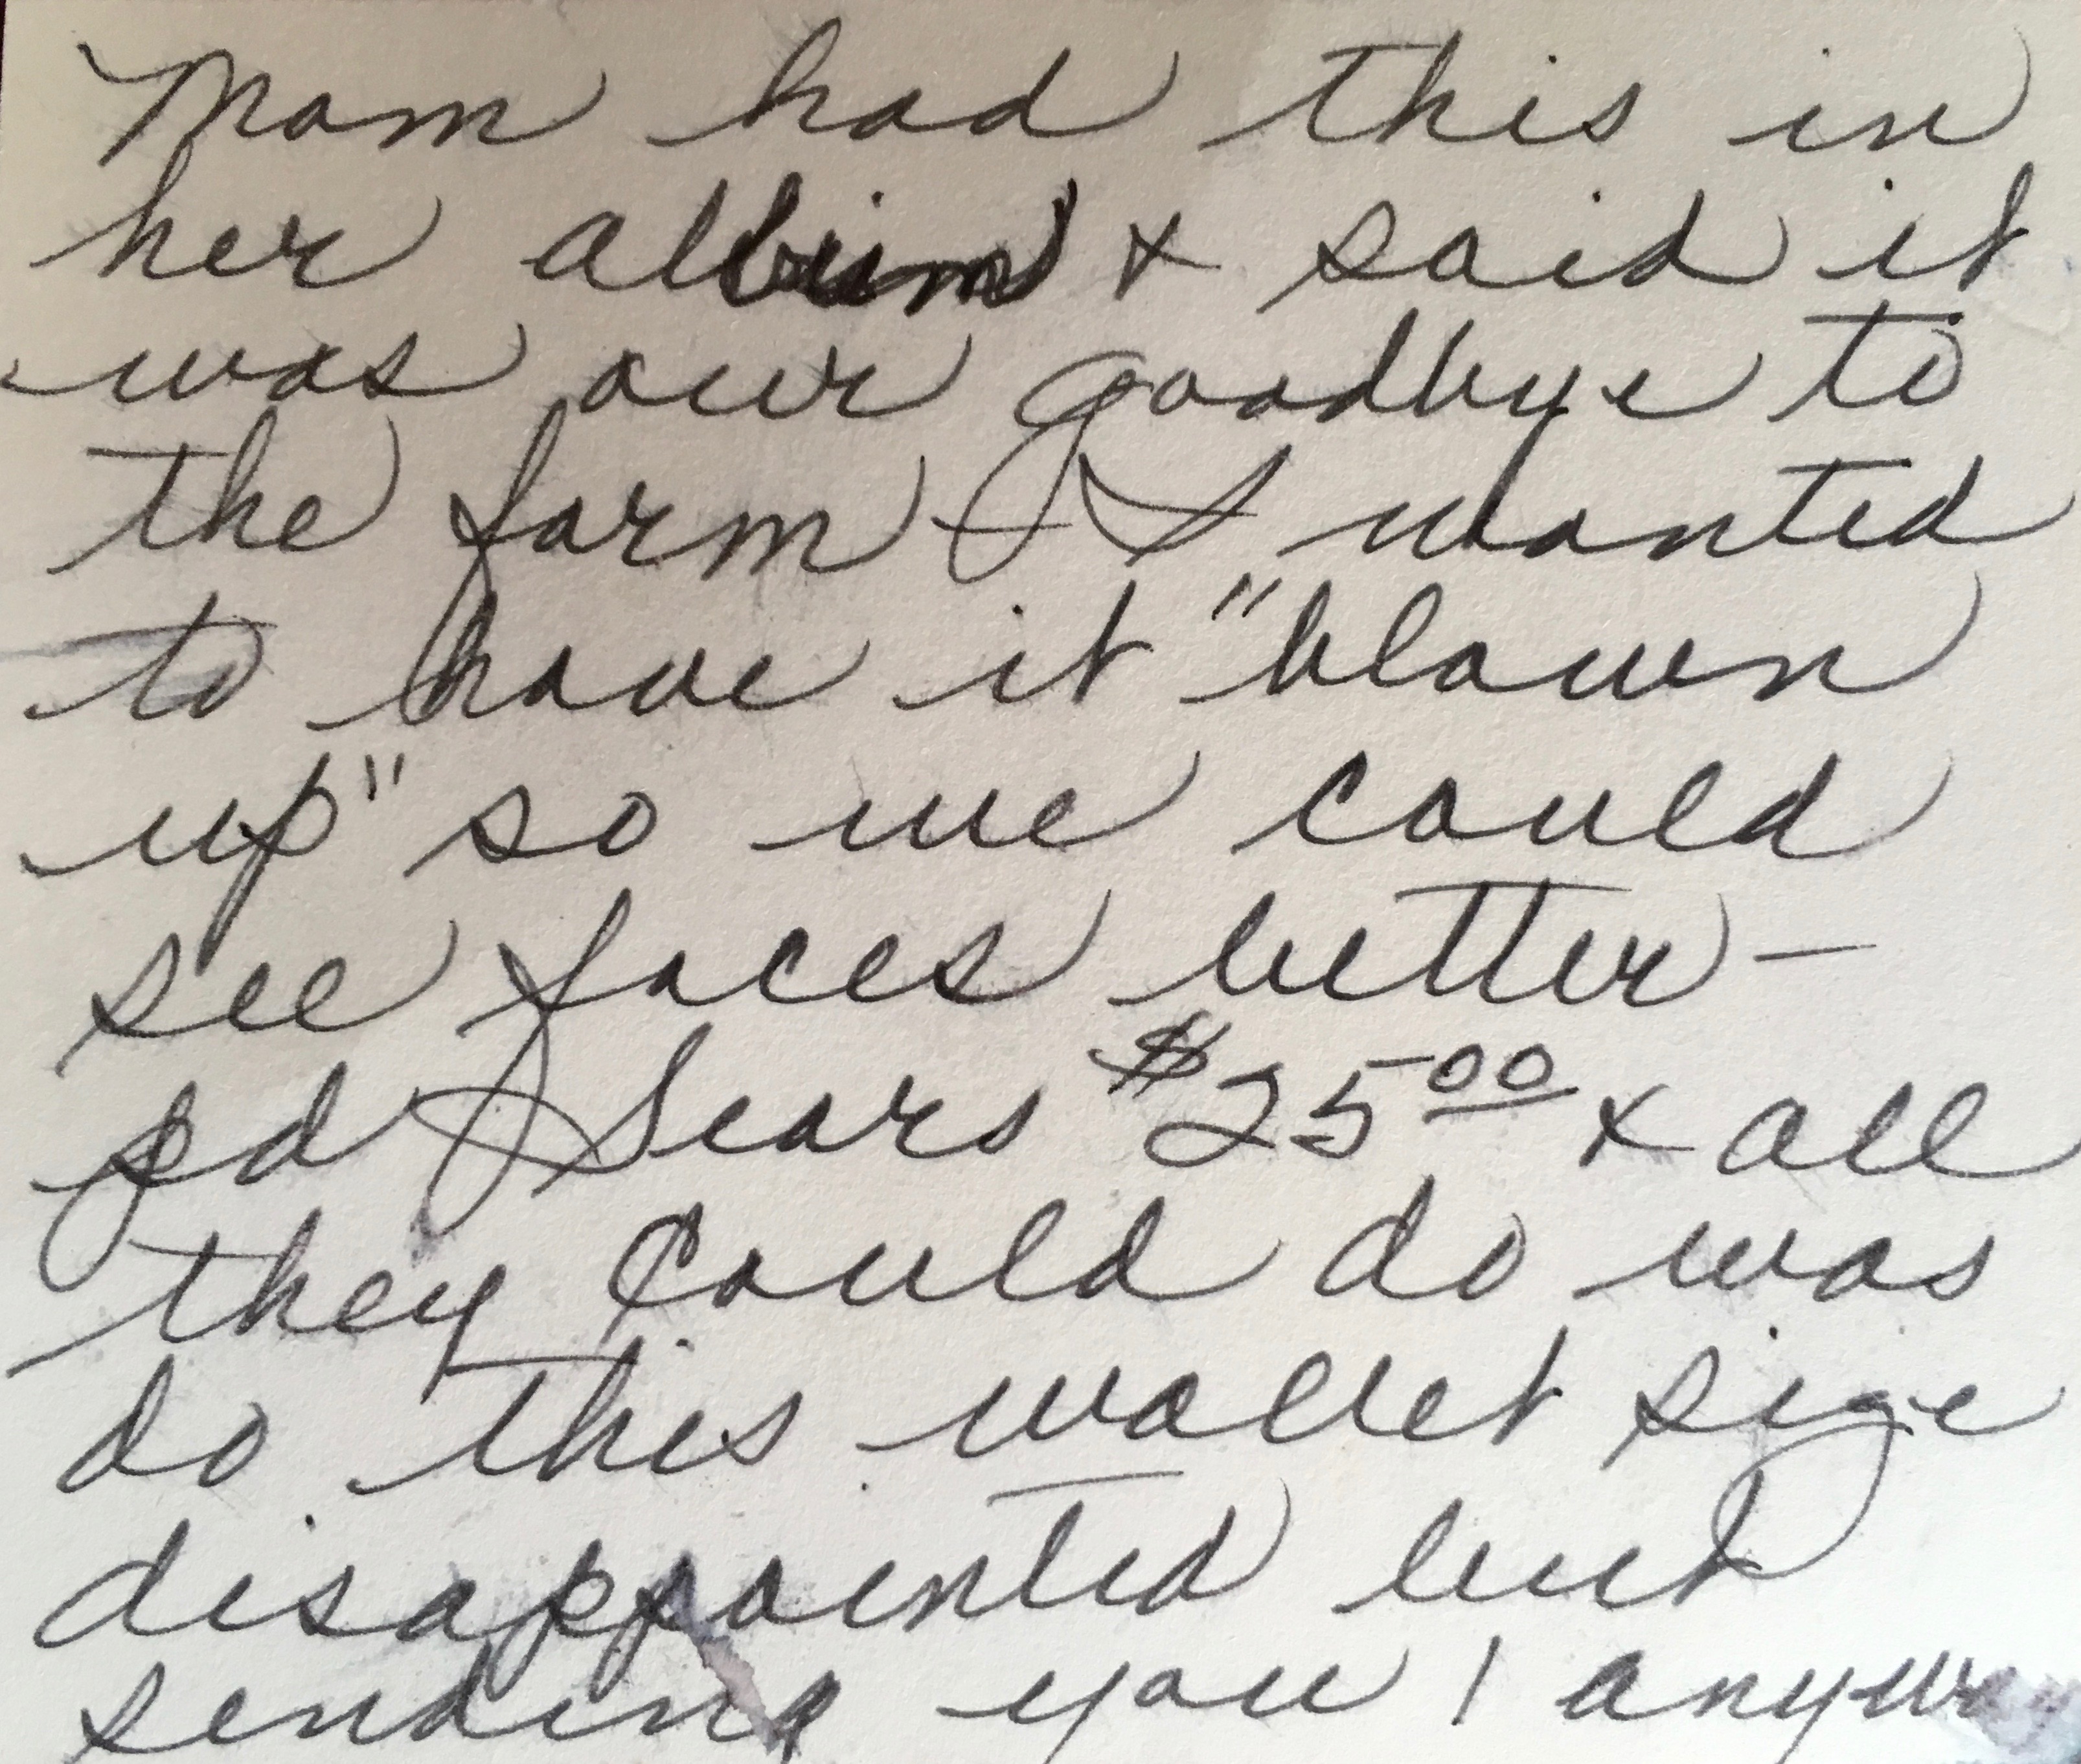 Mom had this in
her album & said it
was our goodbye to
the farm - I wanted
to have it "blown
up" so we could
see faces better -
pd Sears $25.00 & all
they could do was
do this wallet size
disappointed but
sending you 1